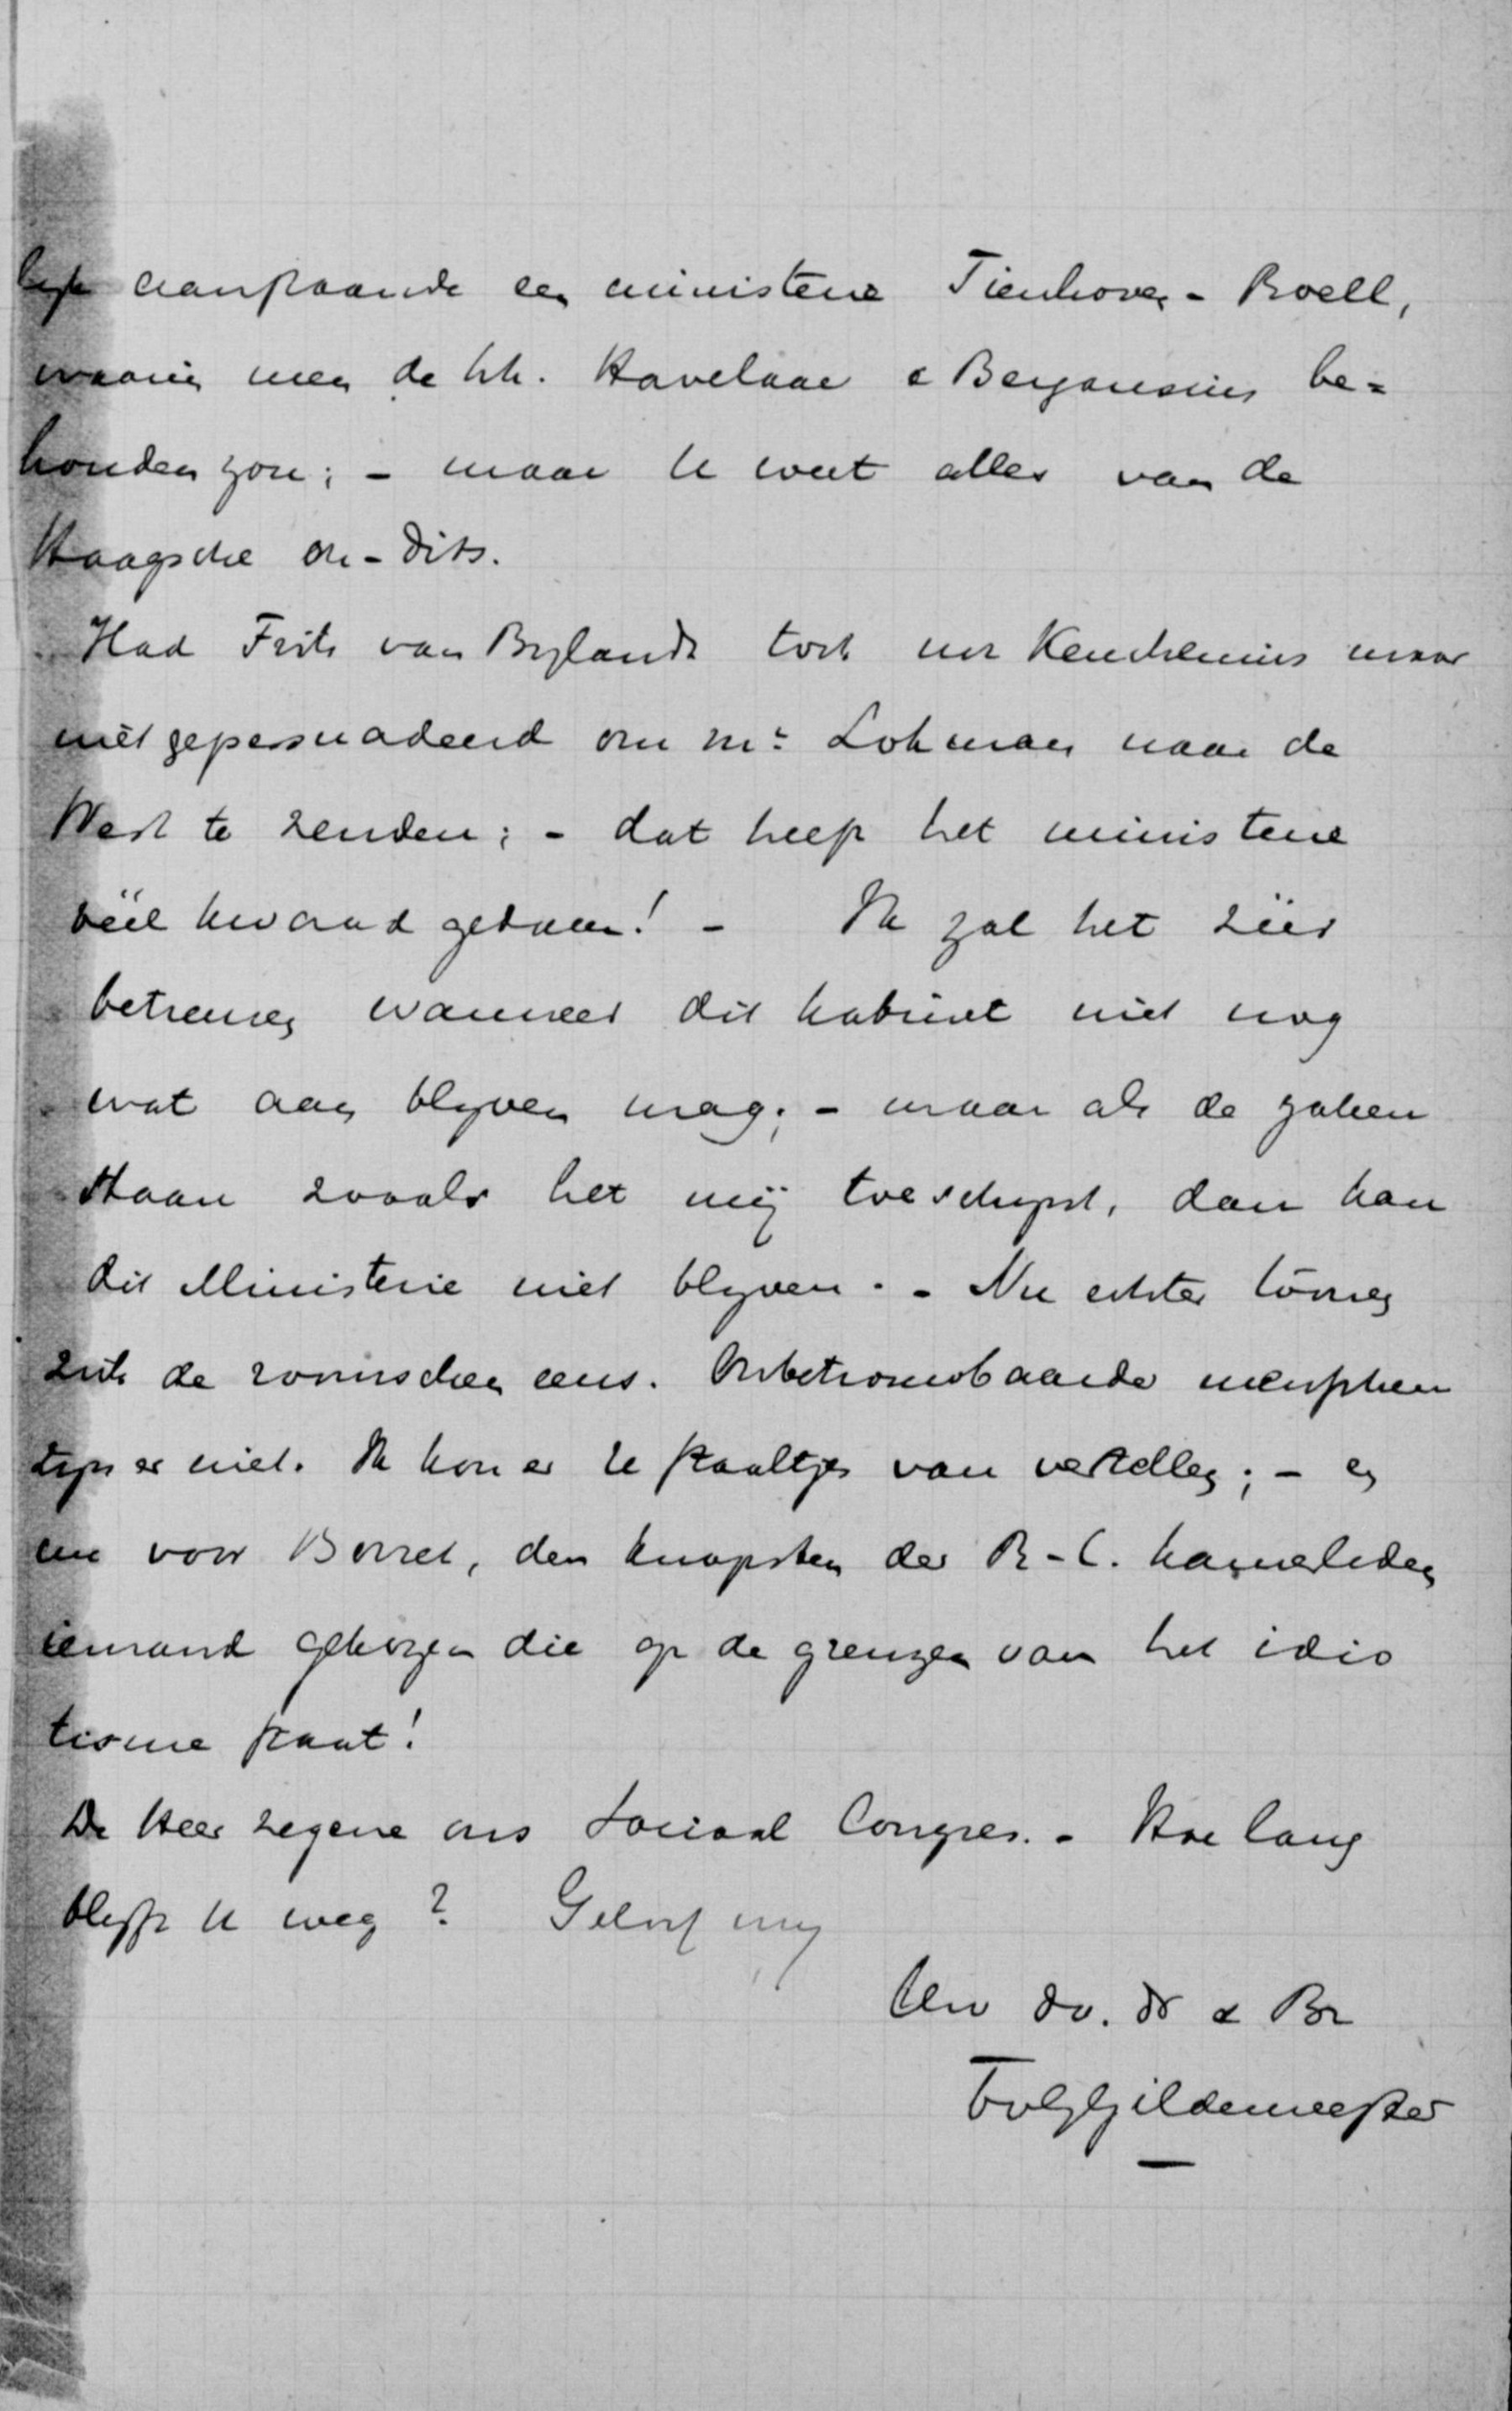 lyk aanstaande een ministerie Tienhoven - Roëll,
waarin men de hh. Havelaar & Bergansius be=
houden zou; - maar U weet alles van de
Haagsche on-dits.
Had Frits van Bylandt toch mr Keuchenius maar
niet gepersuadeerd om Mr Lohman naar de
West te zenden; - dat heeft het ministerie
véél kwaad gedaan! - Ik zal het zéér
betreuren wanneer dit kabinet niet nog
wat aan blyven mag; - maar als de zaken
staan zooals het mij toeschynt, dan kan
dit Ministerie niet blyven. - Nu echter toonen
zich de roomschen eens. Onbetrouwbaarder menschen
zyn er niet. Ik kon er U staaltjes van vertellen; - en
nu voor Borret, den knapsten der R-C. kamerleden
iemand gekozen die op de grenzen van het idio
tisme staat!
De Heer zegene ons Sociaal Congres. - Hoe lang
blyft U weg? Geloof my
Uw dv. dr & Br
FvGhGildemeester